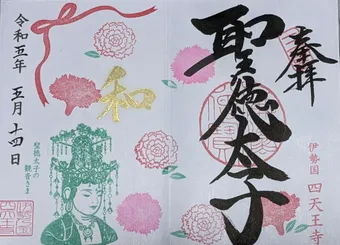 奉拝
聖徳太子
伊勢国 四天王寺
和
令和五年 五月 十四日
聖徳太子の
観音さま